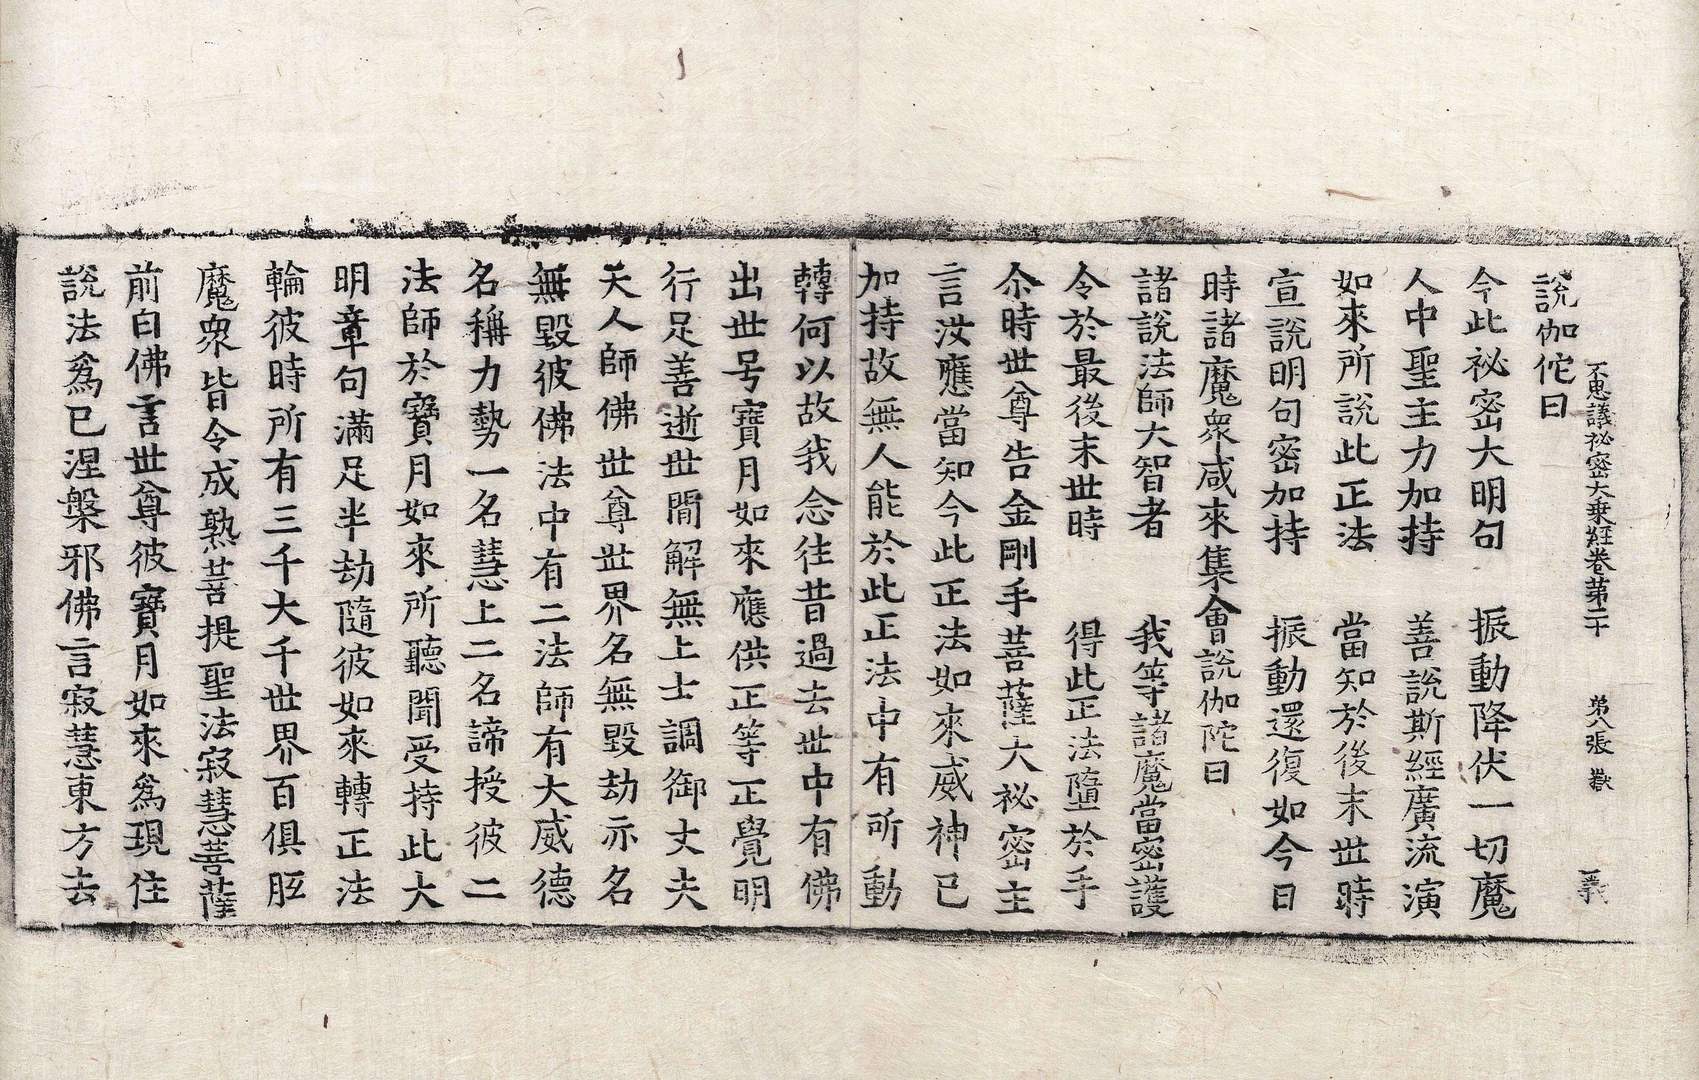 不思議祕密大乘經卷第二十 第八張 歡 義
說伽佗曰
今此祕密大明句 振動降伏一切魔
人中聖主力加持 善說斯經廣流演
如來所說此正法 當知於後末世時
宣說明句密加持 振動還復如今日
時諸魔衆咸來集會說伽陀曰
諸說法師大智者 我等諸魔當密護
令於最後末世時 得此正法墮於手
尒時世尊告金剛手菩薩大祕密主
言汝應當知今此正法如來威神已
加持故無人能於此正法中有所動
轉何以故我念往昔過去世中有佛
出世号寶月如來應供正等正覺明
行足善逝世閒解無上士調御丈夫
天人師佛世尊世界名無毀劫亦名
無毀彼佛法中有二法師有大威德
名稱力勢一名慧上二名諦授彼二
法師於寶月如來所聽聞受持此大
明章句滿足半劫隨彼如來轉正法
輪彼時所有三千大千世界百俱胝
魔衆皆令成熟菩提聖法寂慧菩薩
前白佛言世尊彼寶月如來爲現住
說法爲已涅槃邪佛言寂慧東方去